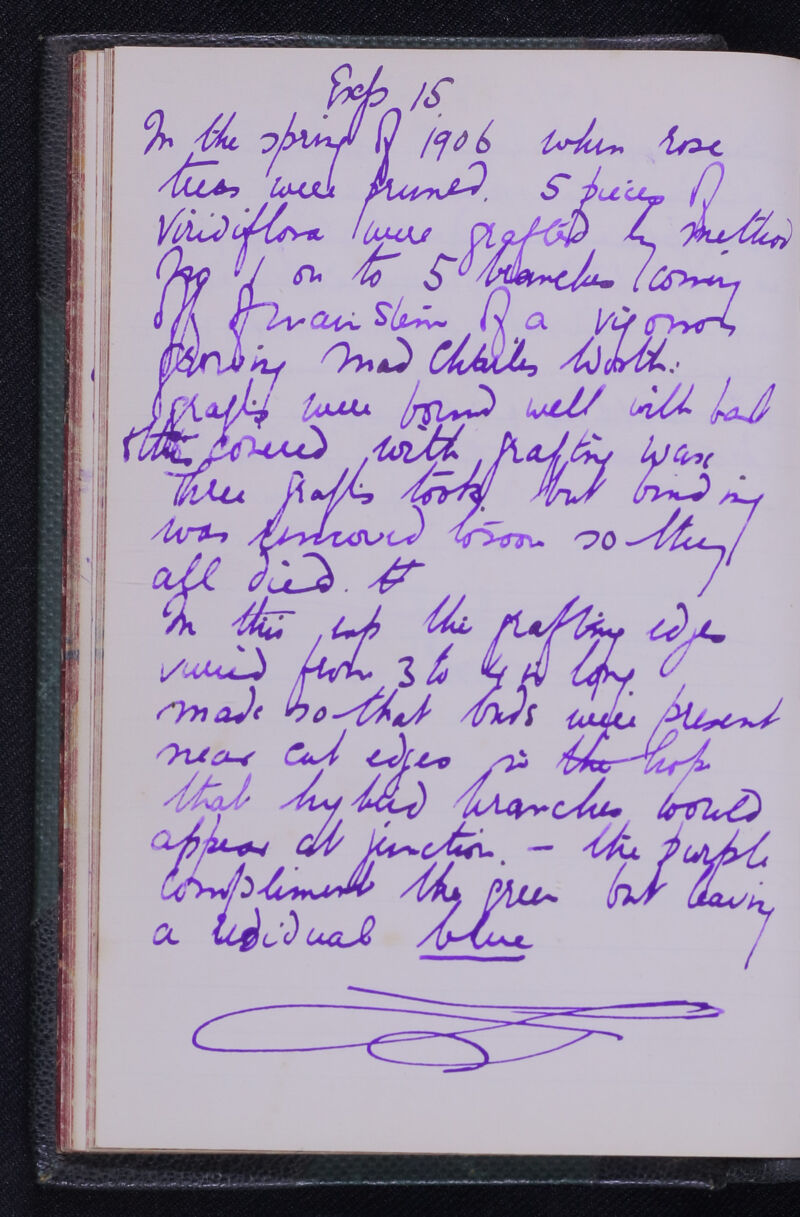 Exp 15
In the spring of 1906 when rose
trees were pruned. 5 pieces of
Viridiflora were grafted by method
on to 5 branches coming
off main stem of a vigorous
growing Mad Charles Worth.
grafts were bound well with bast
covered with grafting wax
three grafts took, but binding
was removed to soon so they
all died.
In this exp the grafting edges
varied from 3 to 4 in long
made so that buds were present
near cut edges in the hop
that hybrid branches would
appear at junction. – the purple
compliment the green but leaving
a residual blue